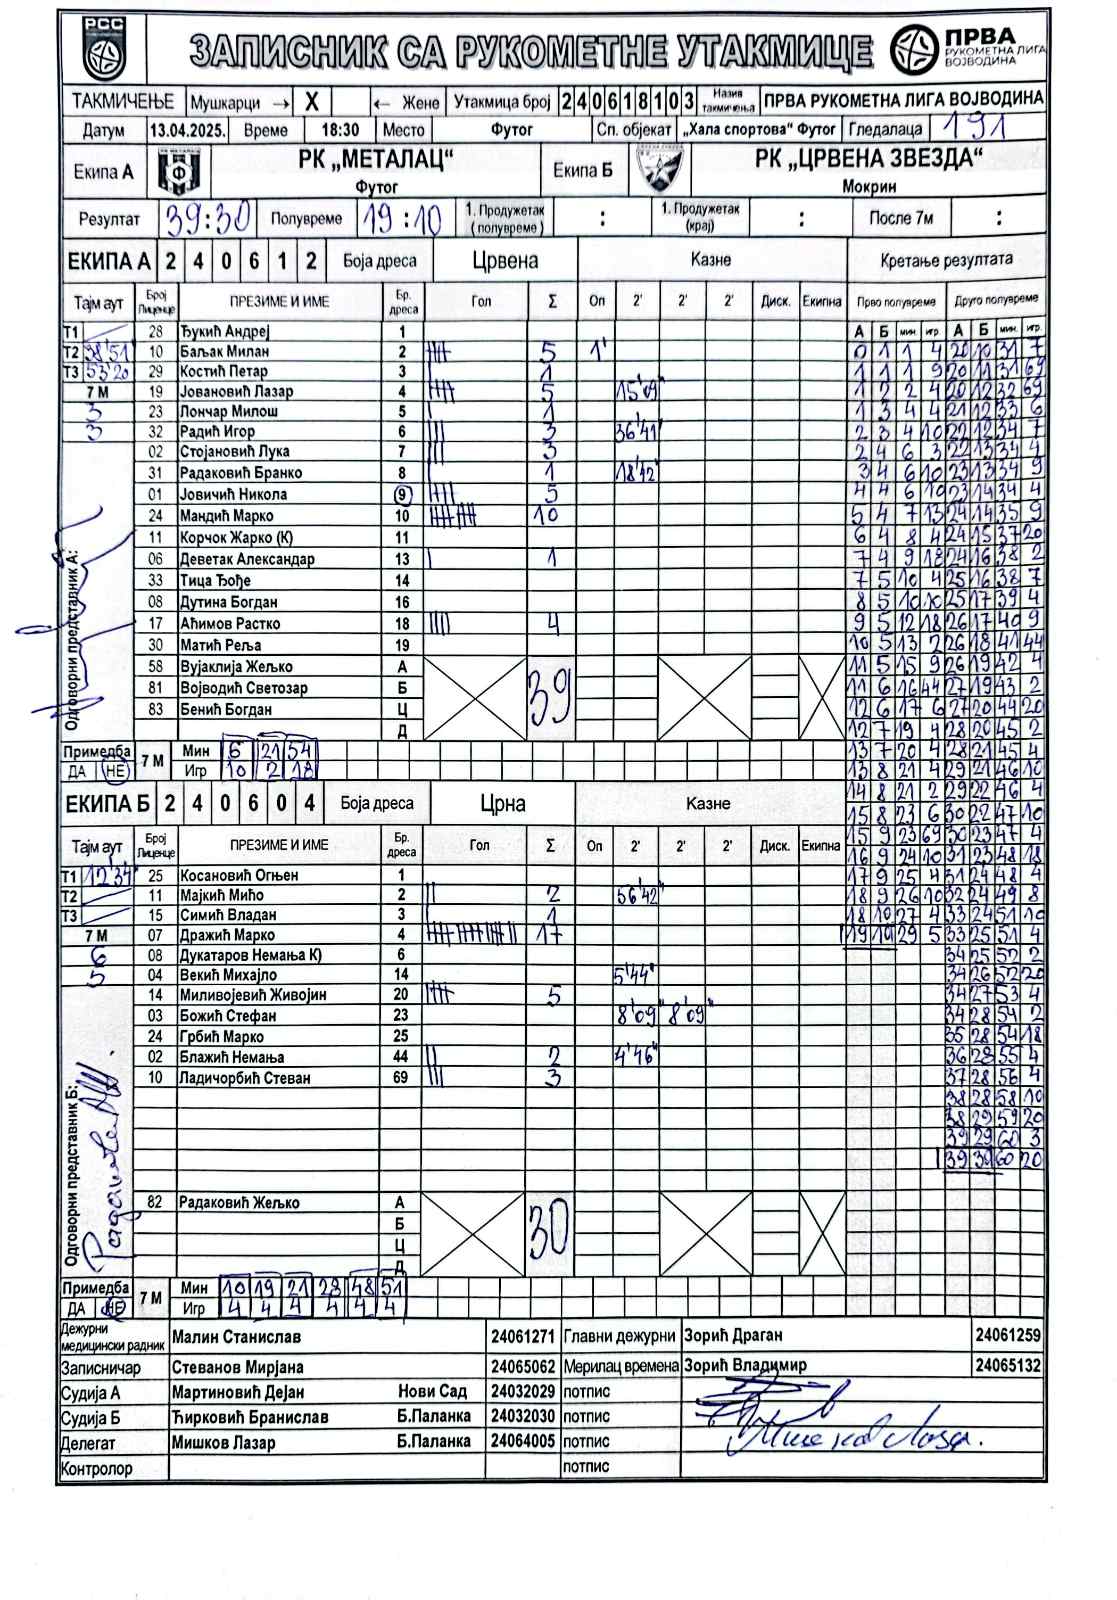 РСС
ЗАПИСНИК СА РУКОМЕТНЕ УТАКМИЦЕ
ПРВА
РУКОМЕТНА ЛИГА
ВОЈВОДИНА
ТАКМИЧЕЊЕ Мушкарци → X ← Жене Утакмица број 2 4 0 6 1 8 1 0 3 Назив такмичења ПРВА РУКОМЕТНА ЛИГА ВОЈВОДИНА
Датум 13.04.2025. Време 18:30 Место Футог Сп. објекат „Хала спортова“ Футог Гледалаца 191
Екипа А РК „МЕТАЛАЦ“ Футог Екипа Б РК „ЦРВЕНА ЗВЕЗДА“ Мокрин
Резултат 39:30 Полувреме 19:10 1. Продужетак (полувреме) : 1. Продужетак (крај) : После 7м :
ЕКИПА А 2 4 0 6 1 2 Боја дреса Црвена Казне Кретање резултата
Тајм аут Број Лиценце ПРЕЗИМЕ И ИМЕ Бр. дреса Гол Σ Оп 2' 2' 2' Диск. Екипна Прво полувреме Друго полувреме
Т1 28 Ђукић Андреј 1 А Б мин игр А Б мин. игр.
Т2 38'51 10 Баљак Милан 2 5 1' 0 1 1 4 20 10 31 7
Т3 53'20 29 Костић Петар 3 1 1 1 1 9 20 11 31 69
7 М 19 Јовановић Лазар 4 5 15'09" 1 2 2 4 20 12 32 69
3 23 Лончар Милош 5 1 1 3 4 4 21 12 33 6
3 32 Радић Игор 6 3 36'41" 2 3 4 10 22 12 34 7
02 Стојановић Лука 7 3 2 4 6 3 22 13 34 4
31 Радаковић Бранко 8 1 18'42" 3 4 6 10 23 13 34 9
01 Јовичић Никола 9 5 4 4 6 10 23 14 34 4
24 Мандић Марко 10 10 5 4 7 13 24 14 35 9
11 Корчок Жарко (К) 11 6 4 8 4 24 15 37 20
06 Деветак Александар 13 1 7 4 9 18 24 16 38 2
33 Тица Ђође 14 7 5 10 4 25 16 38 7
08 Дутина Богдан 16 8 5 10 10 25 17 39 4
17 Аћимов Растко 18 4 9 5 12 18 26 17 40 9
30 Матић Реља 19 10 5 13 2 26 18 41 44
58 Вујаклија Жељко А 39 11 5 15 9 26 19 42 4
81 Војводић Светозар Б 11 6 16 44 27 19 43 2
83 Бенић Богдан Ц 12 6 17 6 27 20 44 20
Д 12 7 19 4 28 20 45 2
Одговорни представник А:
Примедба 7 М Мин 6 21 54 13 7 20 4 28 21 45 4
ДА НЕ Игр 10 2 18 13 8 21 4 29 21 46 10
ЕКИПА Б 2 4 0 6 0 4 Боја дреса Црна Казне 14 8 21 2 29 22 46 4
15 8 23 6 30 22 47 10
Тајм аут Број Лиценце ПРЕЗИМЕ И ИМЕ Бр. дреса Гол Σ Оп 2' 2' 2' Диск. Екипна 15 9 23 69 30 23 47 4
16 9 24 10 31 23 48 18
Т1 12'34" 25 Косановић Огњен 1 17 9 25 4 31 24 48 4
Т2 11 Мајкић Мићо 2 2 56'42" 18 9 26 10 32 24 49 8
Т3 15 Симић Владан 3 1 18 10 27 4 33 24 51 10
7 М 07 Дражић Марко 4 17 19 10 29 5 33 25 51 4
6 08 Дукатаров Немања К) 6 34 25 52 2
5 04 Векић Михајло 14 5'44" 34 26 52 20
14 Миливојевић Живојин 20 5 34 27 53 4
03 Божић Стефан 23 8'09" 8'09" 34 28 54 2
24 Грбић Марко 25 35 28 54 18
02 Блажић Немања 44 2 4'46" 36 28 55 4
10 Ладичорбић Стеван 69 3 37 28 56 4
38 28 58 10
38 29 59 20
39 29 60 3
39 30 60 20
82 Радаковић Жељко А 30
Б
Ц
Д
Одговорни представник Б:
Примедба 7 М Мин 10 19 21 23 48 51
ДА НЕ Игр 4 4 4 4 4 4
Дежурни медицински радник Малин Станислав 24061271 Главни дежурни Зорић Драган 24061259
Записничар Стеванов Мирјана 24065062 Мерилац времена Зорић Владимир 24065132
Судија А Мартиновић Дејан Нови Сад 24032029 потпис
Судија Б Ћирковић Бранислав Б.Паланка 24032030 потпис
Делегат Мишков Лазар Б.Паланка 24064005 потпис
Контролор потпис